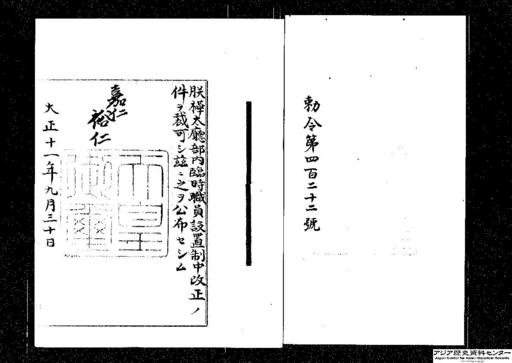 勅令第四百二十二號
朕樺太廳部內臨時職員設置制中改正ノ
件ヲ裁可シ茲ニ之ヲ公布セシム
嘉仁
裕仁
天皇
御璽
大正十一年九月三十日
アジア歴史資料センター
Japan Center for Asian Historical Records